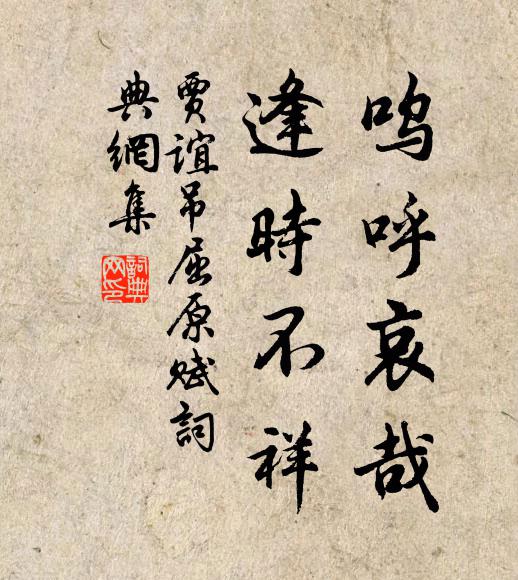 呜呼哀哉
逢時不祥
賈誼吊屈原賦詞
典網集
詞典網印